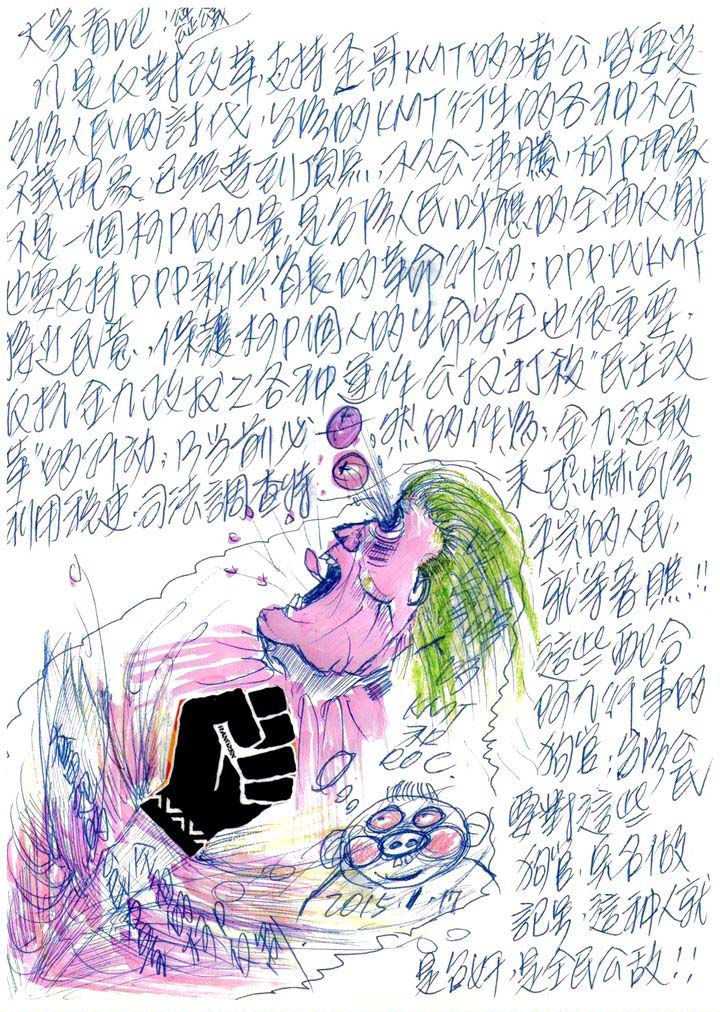 大家看吧!
凡是反對改革,支持歪哥KMT的豬公,皆要受
台灣人民的討伐,台灣的KMT衍生的各種不公
不義現象,已經達到頂點,不久会沸騰,柯P現象
不是一個柯P的力量,是台灣人民 的全面反射
也要支持DPP新 首長的革命行动;DPP KMT
民意,保護柯P個人的生命安全也很重要.
反抗金九政权之各种 件公权打殺"民主改
革"的行动;乃当前必 然的任務;金九还敢
利用稅吏.司法調查特 來恐嚇台灣
平實的人民,
就等著瞧!!
這些配合
阿九行事的
狗官;台灣公民
要對這些
狗官,具名做
記号,這种人就
是台奸,是全民公敌!!
KMT
ROC
2015.1.17